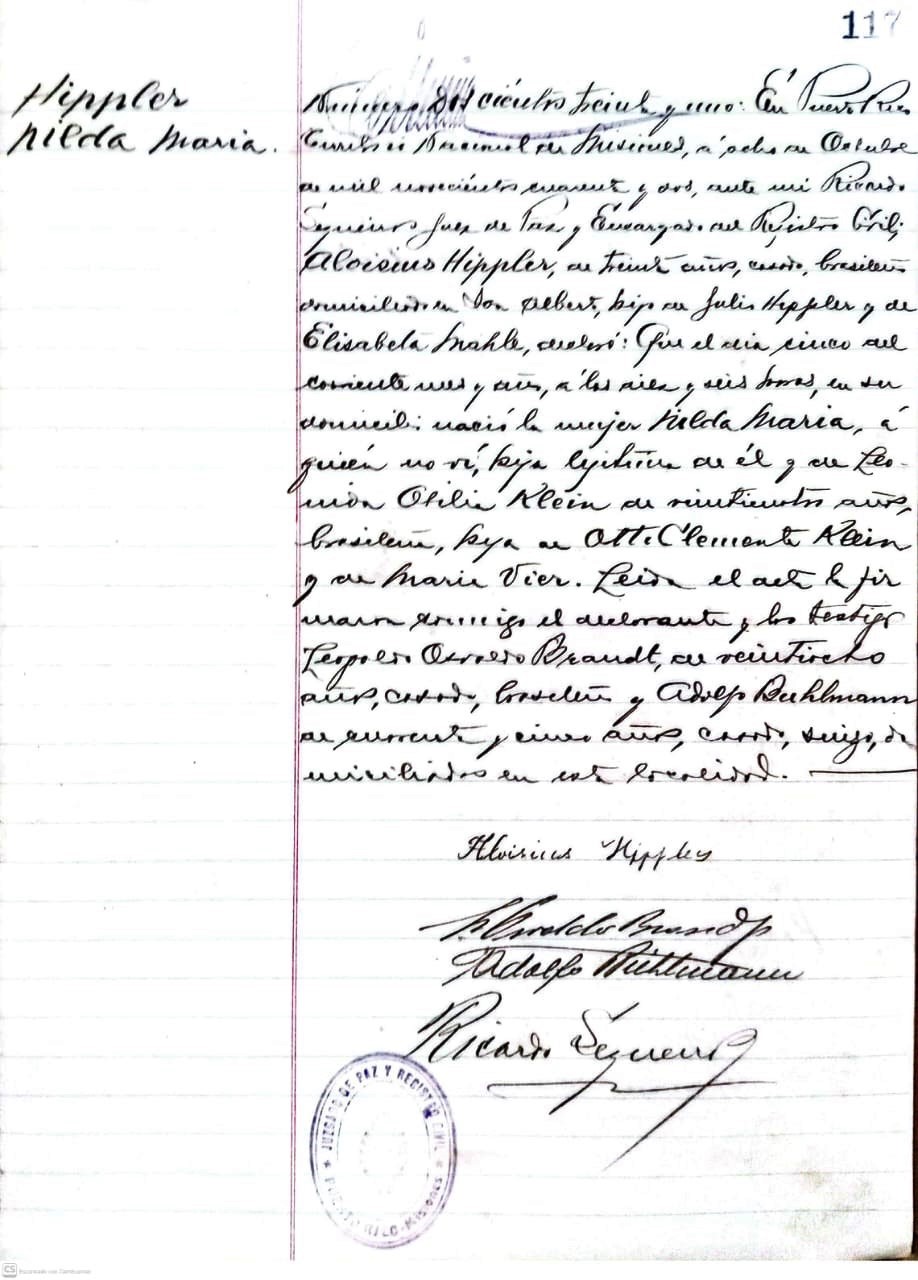 117
Hippler
Nilda Maria.
Número Doscientos treinta y uno: En Puerto Rico
Territorio Nacional de Misiones, á ocho de Octubre
de mil novecientos cuarenta y dos, ante mi Ricardo
Sequeiros Juez de Paz y Encargado del Registro Civil;
Aloisius Hippler, de treinta años, casado, brasileño
domiciliado en Don Albert, hijo de Julio Hippler y de
Elisabeta Mahle, declaró: Que el dia cinco del
corriente mes y año, á las diez y seis horas, en su
domicilio nació la mujer Nilda Maria, á
quién no ví, hija lejitima de él y de Leo-
nida Otilia Klein de veinticuatro años,
brasileña, hija de Otto Clemente Klein
y de Maria Vier. Leida el acta la fir
maron conmigo el declarante y los testigo
Leopoldo Osvaldo Brandt, de veintiocho
años, casado, brasileño y Adolfo Buhlmann
de cuarenta y cinco años, casado, suizo, do
miciliados en esta localidad.
Aloisius Hippler
L Osvaldo Brandt
Adolfo Bühlmann
Ricardo Sequeiros
JUZGADO DE PAZ Y REGISTRO CIVIL
PUERTO RICO - MISIONES
CS Escaneado con CamScanner